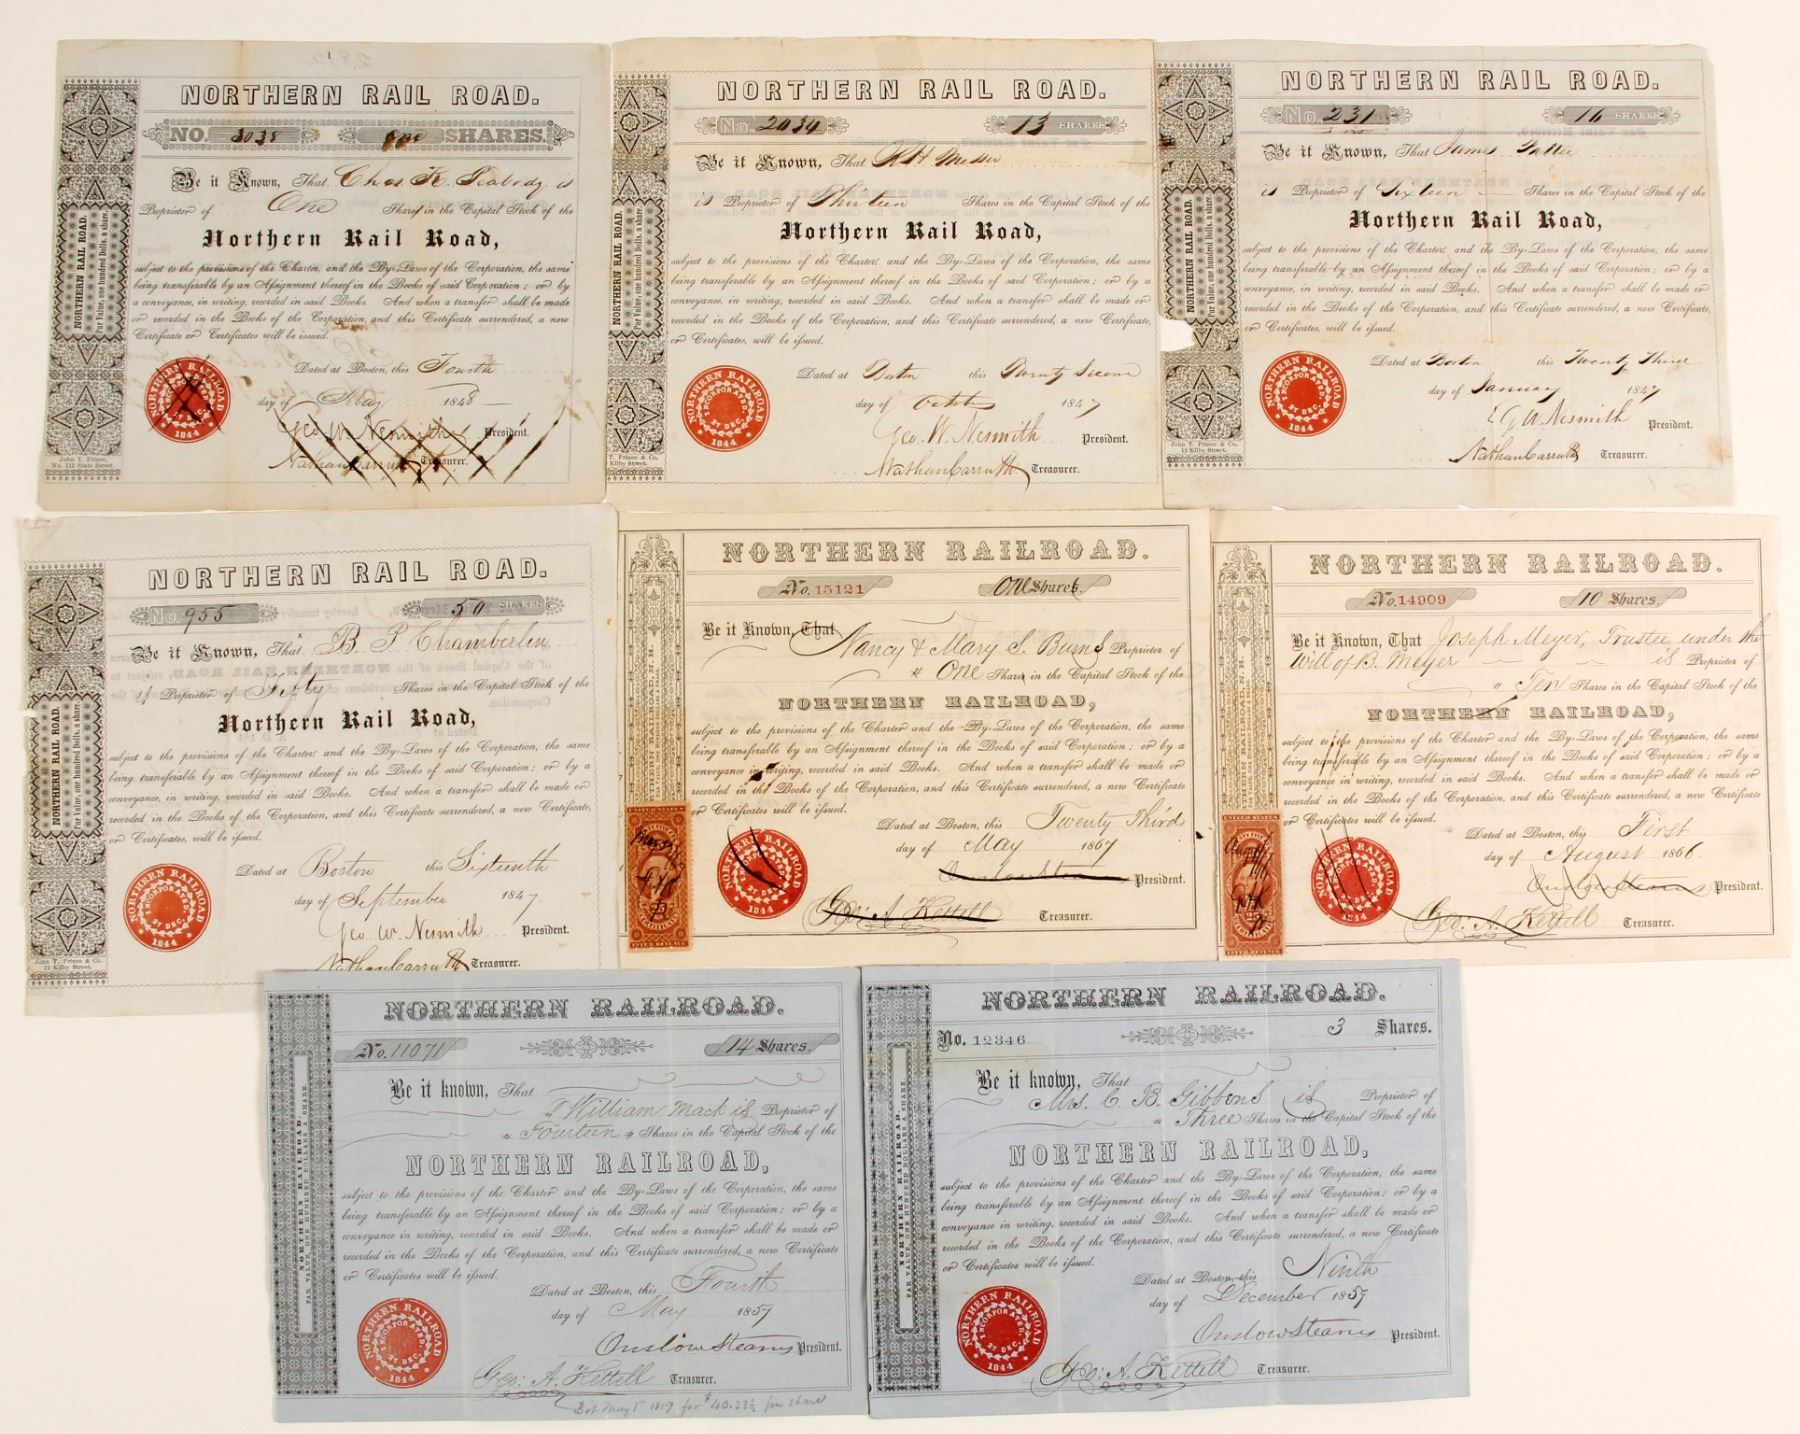 NORTHERN RAIL ROAD.
NO. 3038 One SHARES.
Be it Known, That Chas K. Peabody is
Proprietor of One Shares in the Capital Stock of the
Northern Rail Road,
subject to the provisions of the Charter, and the By-Laws of the Corporation, the same
being transferable by an Assignment thereof in the Books of said Corporation; or by a
conveyance, in writing, recorded in said Books. And when a transfer shall be made
or recorded in the Books of the Corporation, and this Certificate surrendered, a new
Certificate or Certificates will be issued.
Dated at Boston, this Fourth
day of May 1848
Geo. W. Nesmith President.
Nathan Carruth Treasurer.
NORTHERN RAIL ROAD.
Par Value, one hundred Dolls. a share.
NORTHERN RAILROAD
INCORPORATED
27 DEC.
1844
John T. Prince,
No. 112 State Street.
NORTHERN RAIL ROAD.
No. 2034 13 SHARES
Be it Known, That R H Messer
is Proprietor of Thirteen Shares in the Capital Stock of the
Northern Rail Road,
subject to the provisions of the Charter, and the By-Laws of the Corporation, the same
being transferable by an Assignment thereof in the Books of said Corporation; or by a
conveyance, in writing, recorded in said Books. And when a transfer shall be made or
recorded in the Books of the Corporation, and this Certificate surrendered, a new Certificate,
or Certificates, will be issued.
Dated at Boston this Twenty Second
day of October 1847
Geo. W. Nesmith President.
Nathan Carruth Treasurer.
NORTHERN RAIL ROAD.
Par Value, one hundred Dolls. a share.
NORTHERN RAILROAD
INCORPORATED
27 DEC.
1844
T. Prince & Co.
Kilby Street.
NORTHERN RAIL ROAD.
No. 231 16 SHARES
Be it Known, That James Pattee
is Proprietor of Sixteen Shares in the Capital Stock of the
Northern Rail Road,
subject to the provisions of the Charter, and the By-Laws of the Corporation, the same
being transferable by an Assignment thereof in the Books of said Corporation; or by a
conveyance, in writing, recorded in said Books. And when a transfer shall be made or
recorded in the Books of the Corporation, and this Certificate surrendered, a new Certificate,
or Certificates, will be issued.
Dated at Boston this Twenty Third
day of January 1847
G W Nesmith President.
Nathan Carruth Treasurer.
NORTHERN RAIL ROAD.
Par Value, one hundred Dolls. a share.
NORTHERN RAILROAD
INCORPORATED
27 DEC.
1844
John T. Prince & Co.
13 Kilby Street.
NORTHERN RAIL ROAD.
No. 955 50 SHARES
Be it Known, That B. P. Chamberlin
is Proprietor of Fifty Shares in the Capital Stock of the
Northern Rail Road,
subject to the provisions of the Charter, and the By-Laws of the Corporation, the same
being transferable by an Assignment thereof in the Books of said Corporation; or by a
conveyance, in writing, recorded in said Books. And when a transfer shall be made or
recorded in the Books of the Corporation, and this Certificate surrendered, a new Certificate,
or Certificates, will be issued.
Dated at Boston this Sixteenth
day of September 1847.
Geo. W. Nesmith President.
Nathan Carruth Treasurer.
NORTHERN RAIL ROAD.
Par Value, one hundred Dolls. a share.
NORTHERN RAILROAD
INCORPORATED.
27 DEC.
1844
John T. Prince & Co.
13 Kilby Street.
NORTHERN RAILROAD.
No. 15121 One Shares.
Be it Known, That Nancy & Mary S. Burns Proprietor of
One Shares in the Capital Stock of the
NORTHERN RAILROAD,
subject to the provisions of the Charter and the By-Laws of the Corporation, the same
being transferable by an Assignment thereof in the Books of said Corporation; or by a
conveyance in writing, recorded in said Books. And when a transfer shall be made or
recorded in the Books of the Corporation, and this Certificate surrendered, a new Certificate
or Certificates will be issued.
Dated at Boston, this Twenty Third
day of May 1867
Onslow Stearns President.
Geo: A. Kettell Treasurer.
NORTHERN RAILROAD
27 DEC.
1844
INTER. REVENUE
NORTHERN RAILROAD.
No. 14909 10 Shares.
Be it Known, That Joseph Meyer, Trustee under the
Will of B. Meyer is Proprietor of
Ten Shares in the Capital Stock of the
NORTHERN RAILROAD,
subject to the provisions of the Charter and the By-Laws of the Corporation, the same
being transferable by an Assignment thereof in the Books of said Corporation; or by a
conveyance in writing, recorded in said Books. And when a transfer shall be made or
recorded in the Books of the Corporation, and this Certificate surrendered, a new Certificate
or Certificates will be issued.
Dated at Boston, this First
day of August 1866.
Onslow Stearns President.
Geo: A. Kettell Treasurer.
NORTHERN RAILROAD
27 DEC.
1844
UNITED STATES
INTER. REVENUE
NORTHERN RAILROAD.
No. 11071 14 Shares.
Be it known, That
William Mack is Proprietor of
Fourteen Shares in the Capital Stock of the
NORTHERN RAILROAD,
subject to the provisions of the Charter and the By-Laws of the Corporation, the same
being transferable by an Assignment thereof in the Books of said Corporation; or by a
conveyance in writing, recorded in said Books. And when a transfer shall be made or
recorded in the Books of the Corporation, and this Certificate surrendered, a new Certificate
or Certificates will be issued.
Dated at Boston, this Fourth
day of May 1857
Onslow Stearns President.
Geo: A. Kettell Treasurer.
May 5 1857 for $40.23½ per share
NORTHERN RAILROAD.
PAR VALUE, ONE HUNDRED DOLLARS A SHARE.
NORTHERN RAILROAD
INCORPORATED.
27 DEC.
1844
NORTHERN RAILROAD.
No. 12346 3 Shares.
Be it known, That
Mrs. C. B. Gibbons is Proprietor of
Three Shares in the Capital Stock of the
NORTHERN RAILROAD,
subject to the provisions of the Charter and the By-Laws of the Corporation, the same
being transferable by an Assignment thereof in the Books of said Corporation; or by a
conveyance in writing, recorded in said Books. And when a transfer shall be made or
recorded in the Books of the Corporation, and this Certificate surrendered, a new Certificate
or Certificates will be issued.
Dated at Boston, this Ninth
day of December 1857
Onslow Stearns President.
Geo: A. Kettell Treasurer.
NORTHERN RAILROAD.
PAR VALUE, ONE HUNDRED DOLLARS A SHARE
NORTHERN RAILROAD
INCORPORATED.
27 DEC.
1844